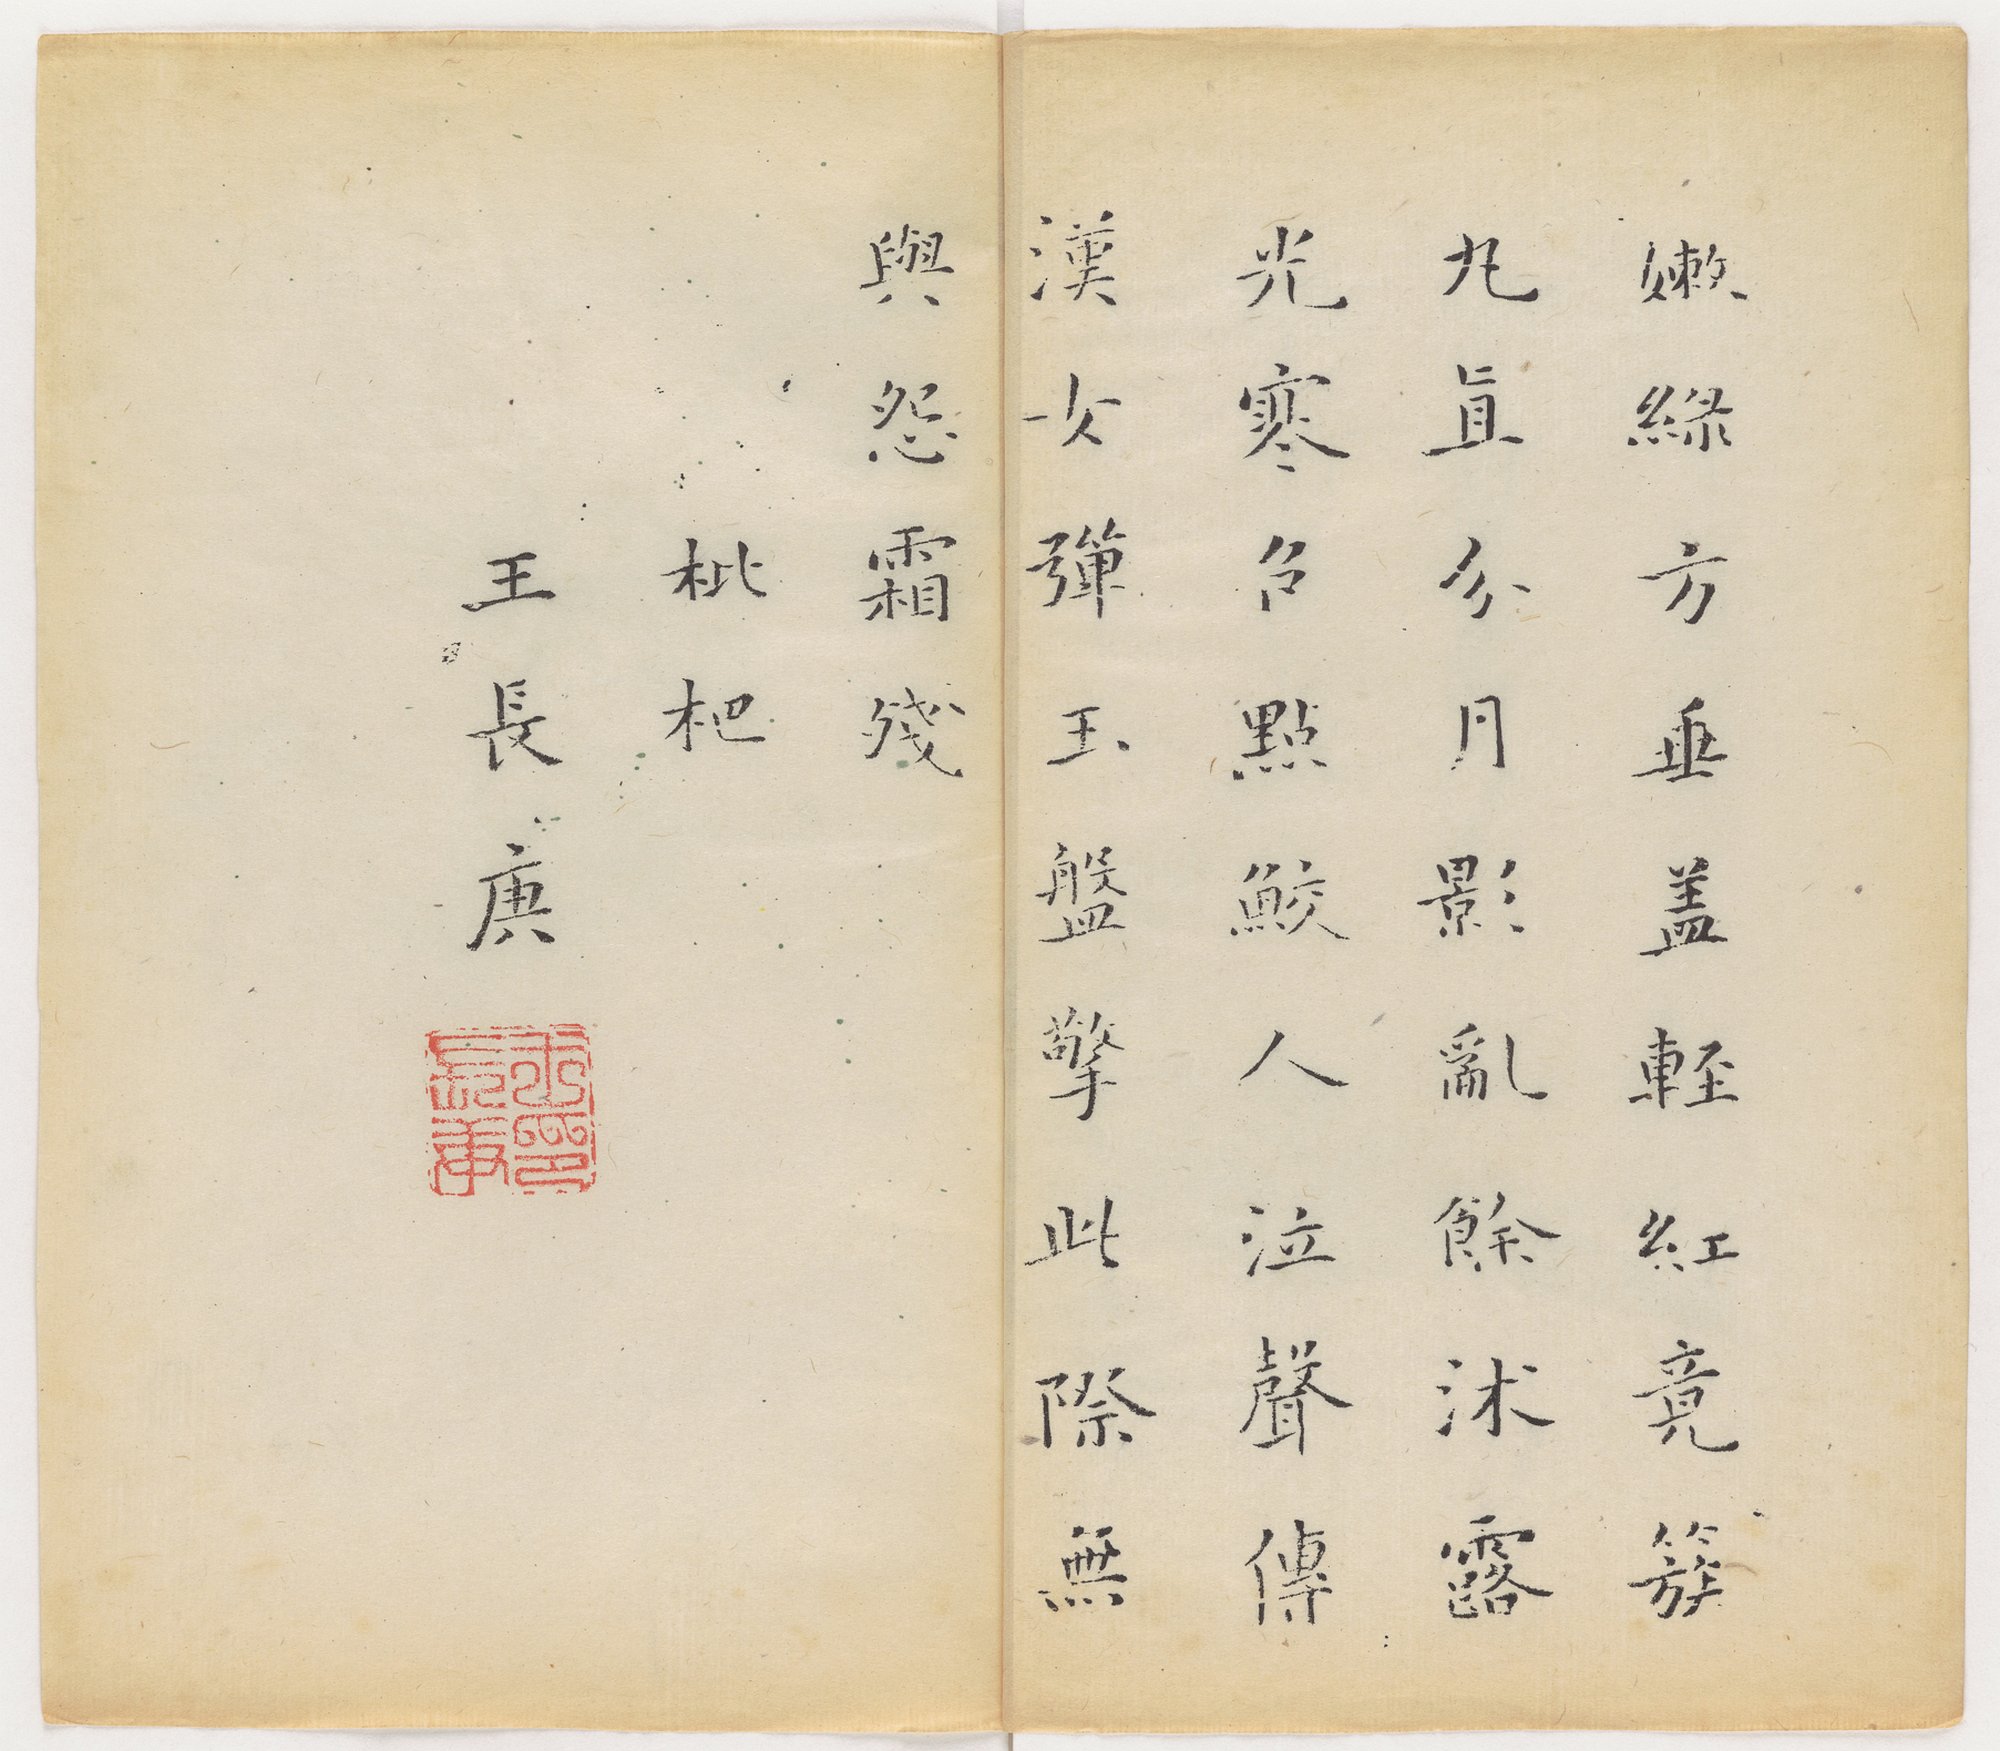 嫩綠方垂蓋輕紅竟簇
丸眞分月影亂餘沭露
光寒色點鮫人泣聲傳
漢女彈玉盤擎此際無
與怨霜殘
枇杷
王長庚